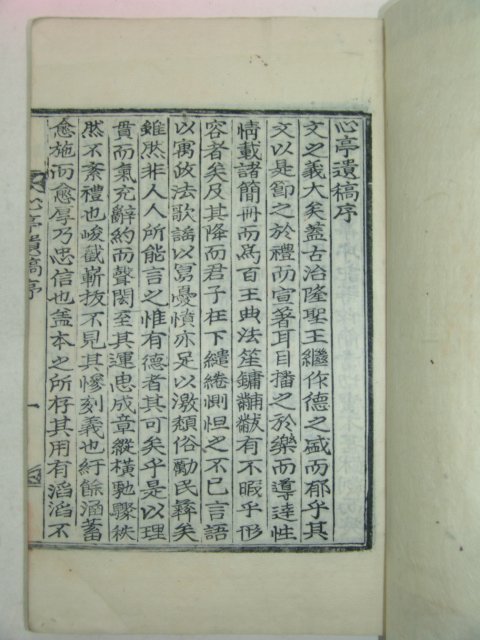 心亭遺稿序
文之義大矣盖古治隆聖王繼作德之盛而郁乎其
文以是節之於禮而宣著耳目播之於樂而導達性
情載諸簡冊而為百王典法笙鏞黼黻有不暇乎形
容者矣及其降而君子在下繾綣惻怛之不已言語
以寓政法歌謠以舄憂憤亦足以激頹俗勵民彛矣
雖然非人人所能言之惟有德者其可矣乎是以理
貫而氣充辭約而聲閎至其運思成章縱橫馳驟秩
然不紊禮也峻截嶄拔不見其慘刻義也紆餘涵蓄
愈施而愈厚乃忠信也盖本之所存其用有滔滔不
心亭遺稿序
一